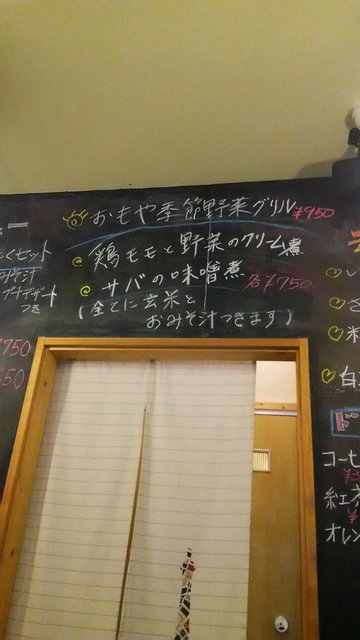 おもや季節野菜グリル ¥950
鶏モモと野菜のクリーム煮
サバの味噌煮 各¥750
(全てに玄米と
おみそ汁つきます)
セット
つき
750
50
白
コーヒ
紅茶
オレン